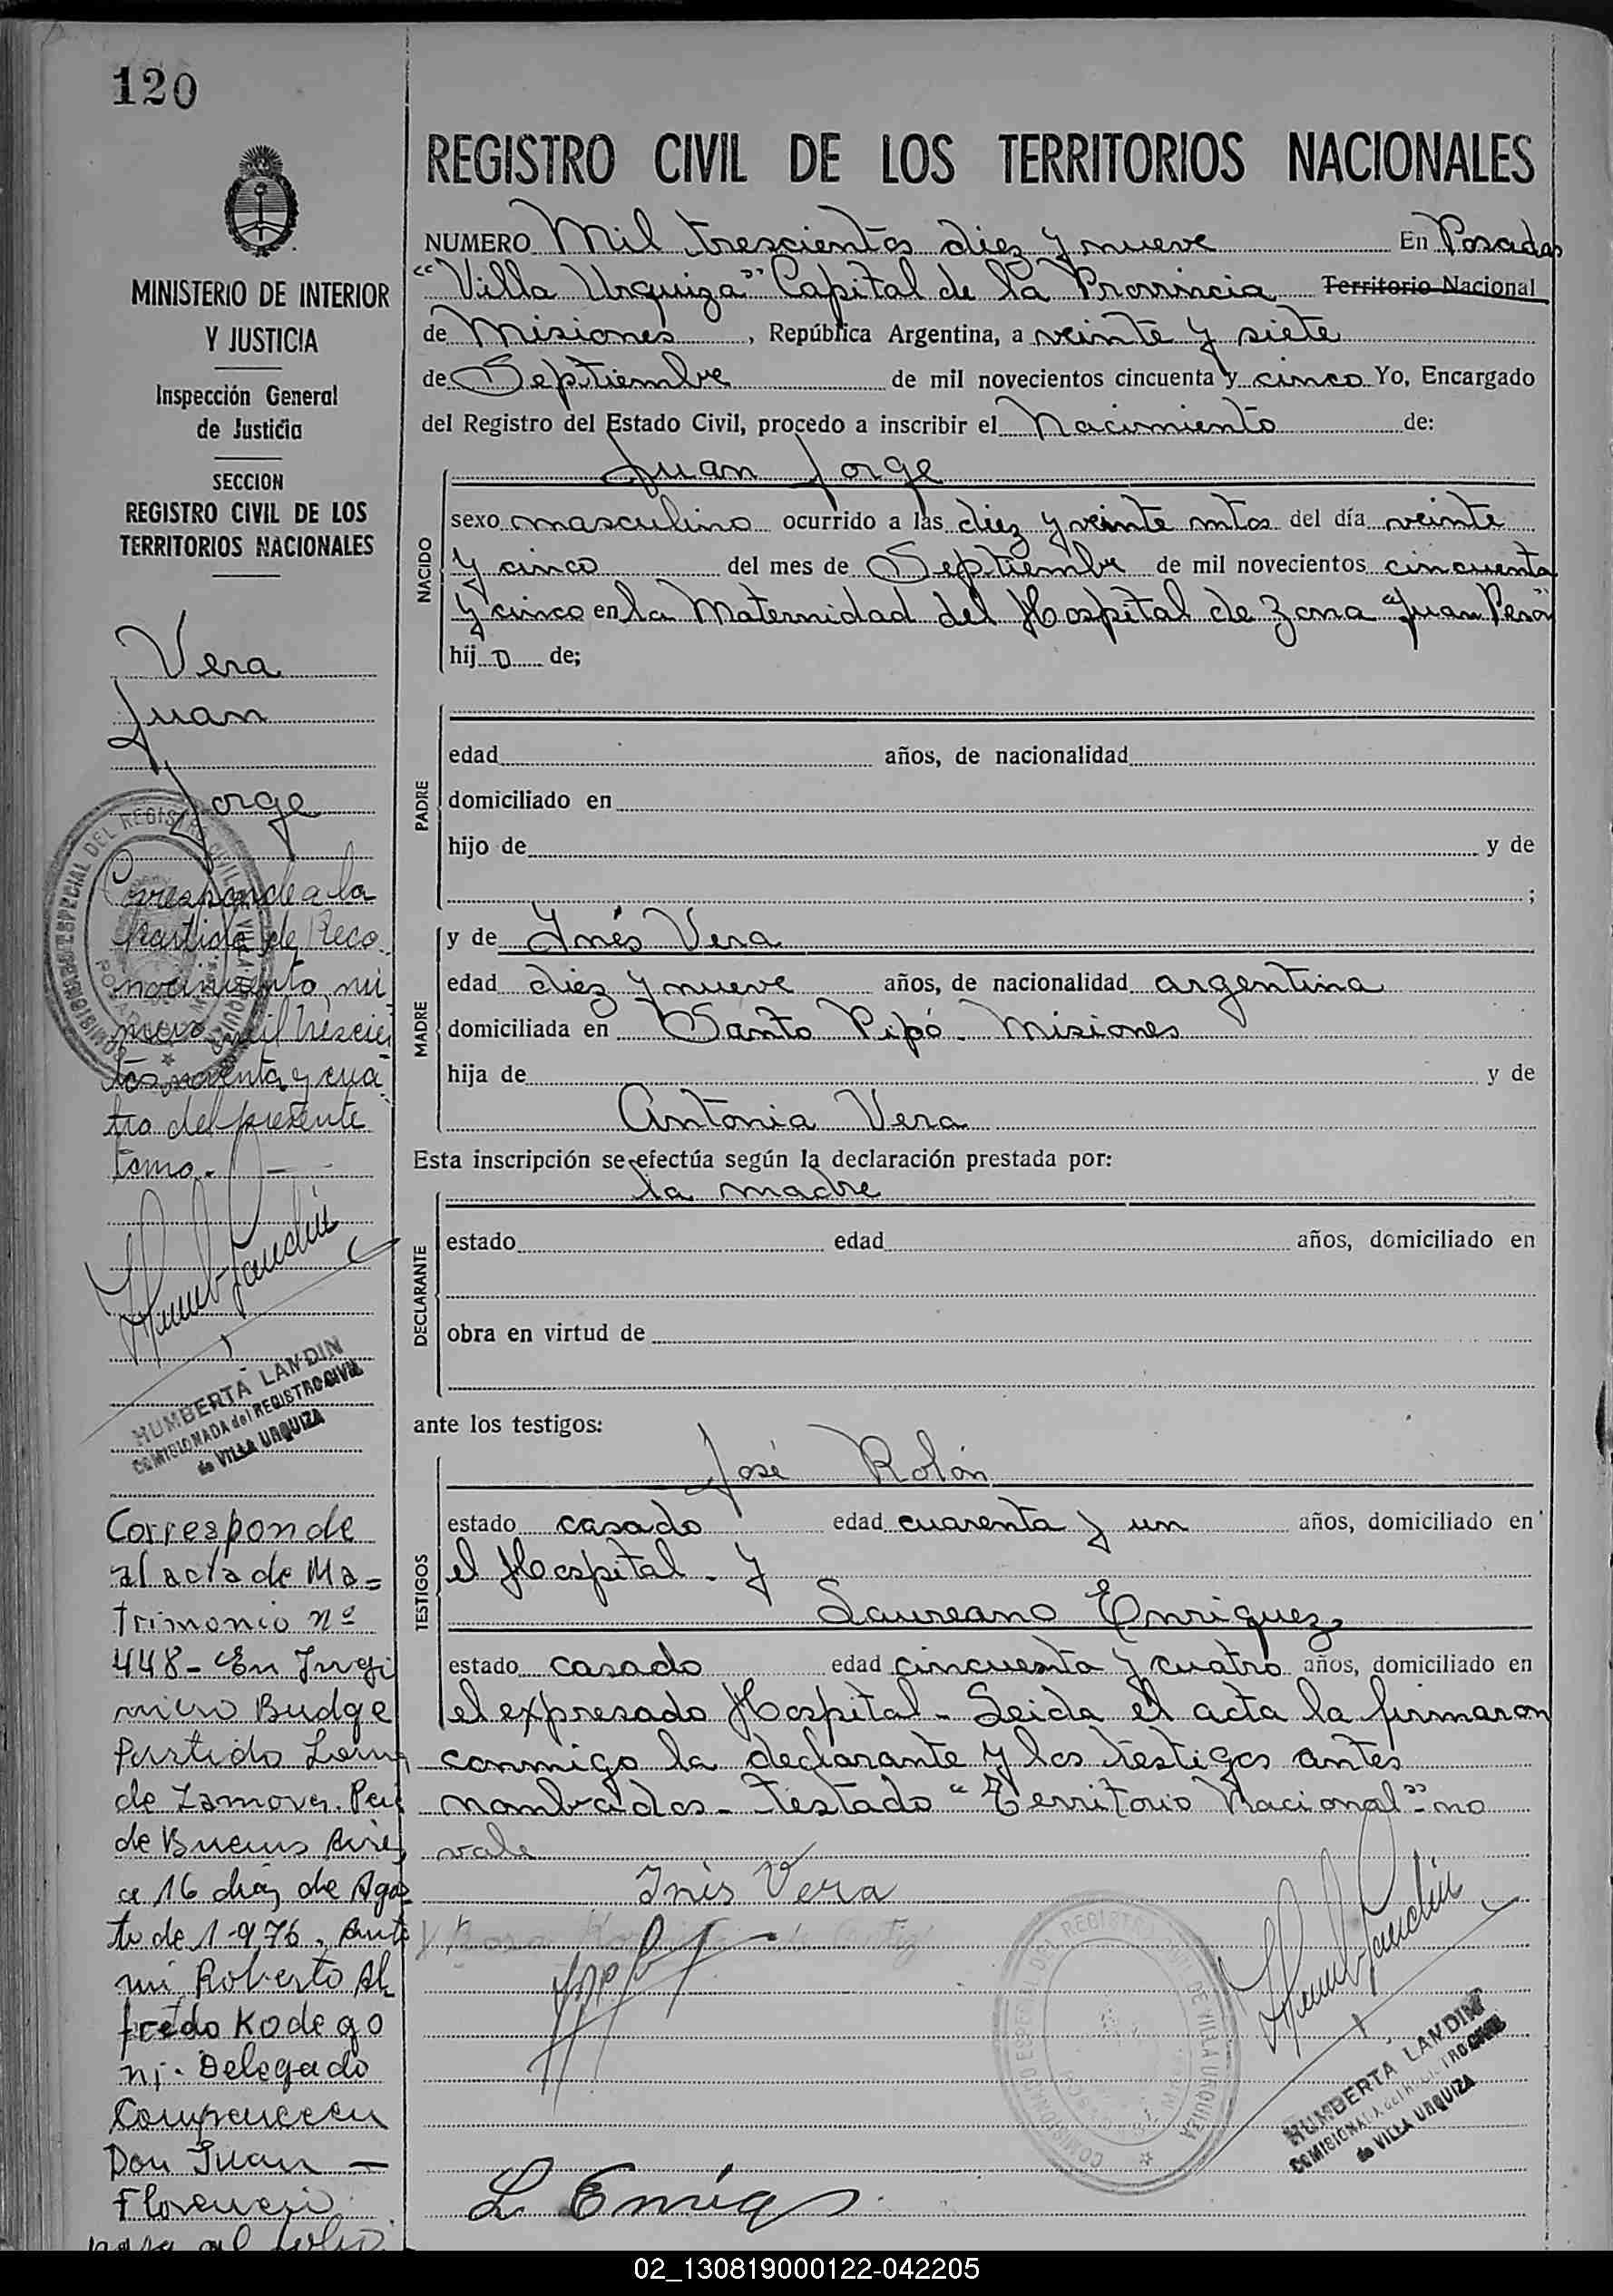 120
MINISTERIO DE INTERIOR
Y JUSTICIA
Inspección General
de Justicia
SECCION
REGISTRO CIVIL DE LOS
TERRITORIOS NACIONALES
Vera
Juan
Jorge
Corresponde a la
partida de Reco
nocimiento, nú
mero mil trescien
tos noventa y cua
tro del presente
tomo.-
HUMBERTA LANDIN
COMISIONADA del REGISTRO CIVIL
de VILLA URQUIZA
Corresponde
al acta de Ma=
trimonio nº
448- En Ingi
miero Budge
Partido Lom
de Zamora.
de Buenos Aires
a 16 días de Agos
to de 1.976. Ante
mi Roberto Al
fredo Kodego
ni. Delegado
Comparecen
Don Juan —
Florenci
pasa al folio
REGISTRO CIVIL DE LOS TERRITORIOS NACIONALES
NUMERO Mil trescientos diez y nueve En Posadas
"Villa Urquiza" Capital de la Provincia Territorio Nacional
de Misiones, República Argentina, a veinte y siete
de Septiembre de mil novecientos cincuenta y cinco Yo, Encargado
del Registro del Estado Civil, procedo a inscribir el Nacimiento de:
Juan Jorge
NACIDO
sexo masculino ocurrido a las diez y veinte mtos del día veinte
y cinco del mes de Septiembre de mil novecientos cincuenta
y cinco en la Maternidad del Hospital de Zona "Juan Perón"
hij o de;
PADRE
edad años, de nacionalidad
domiciliado en
hijo de y de
;
MADRE
y de Inés Vera
edad diez y nueve años, de nacionalidad argentina
domiciliada en Santo Pipó. Misiones
hija de y de
Antonia Vera
Esta inscripción se efectúa según la declaración prestada por:
la madre
DECLARANTE
estado edad años, domiciliado en
obra en virtud de
ante los testigos:
TESTIGOS
José Rolón
estado casado edad cuarenta y un años, domiciliado en
el Hospital. y
Laureano Enriquez
estado casado edad cincuenta y cuatro años, domiciliado en
el expresado Hospital - Leida el acta la firmaron
conmigo la declarante y los testigos antes
nombrados - Testado "Territorio Nacional" - no
vale
Inés Vera
L Enriqz
COMISIONADO ESPECIAL DEL REGISTRO CIVIL DE VILLA URQUIZA
HUMBERTA LANDIN
COMISIONADA del REGISTRO CIVIL
de VILLA URQUIZA
02_130819000122-042205